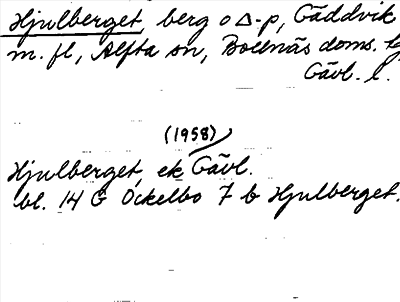 Hjulberget, berg o Δ-p, Gäddvik
m. fl, Alfta sn, Bollnäs doms. 
Gävl. l.
(1958)
Hjulberget, ek Gävl.
bl. 14 G Ockelbo 7 b Hjulberget.